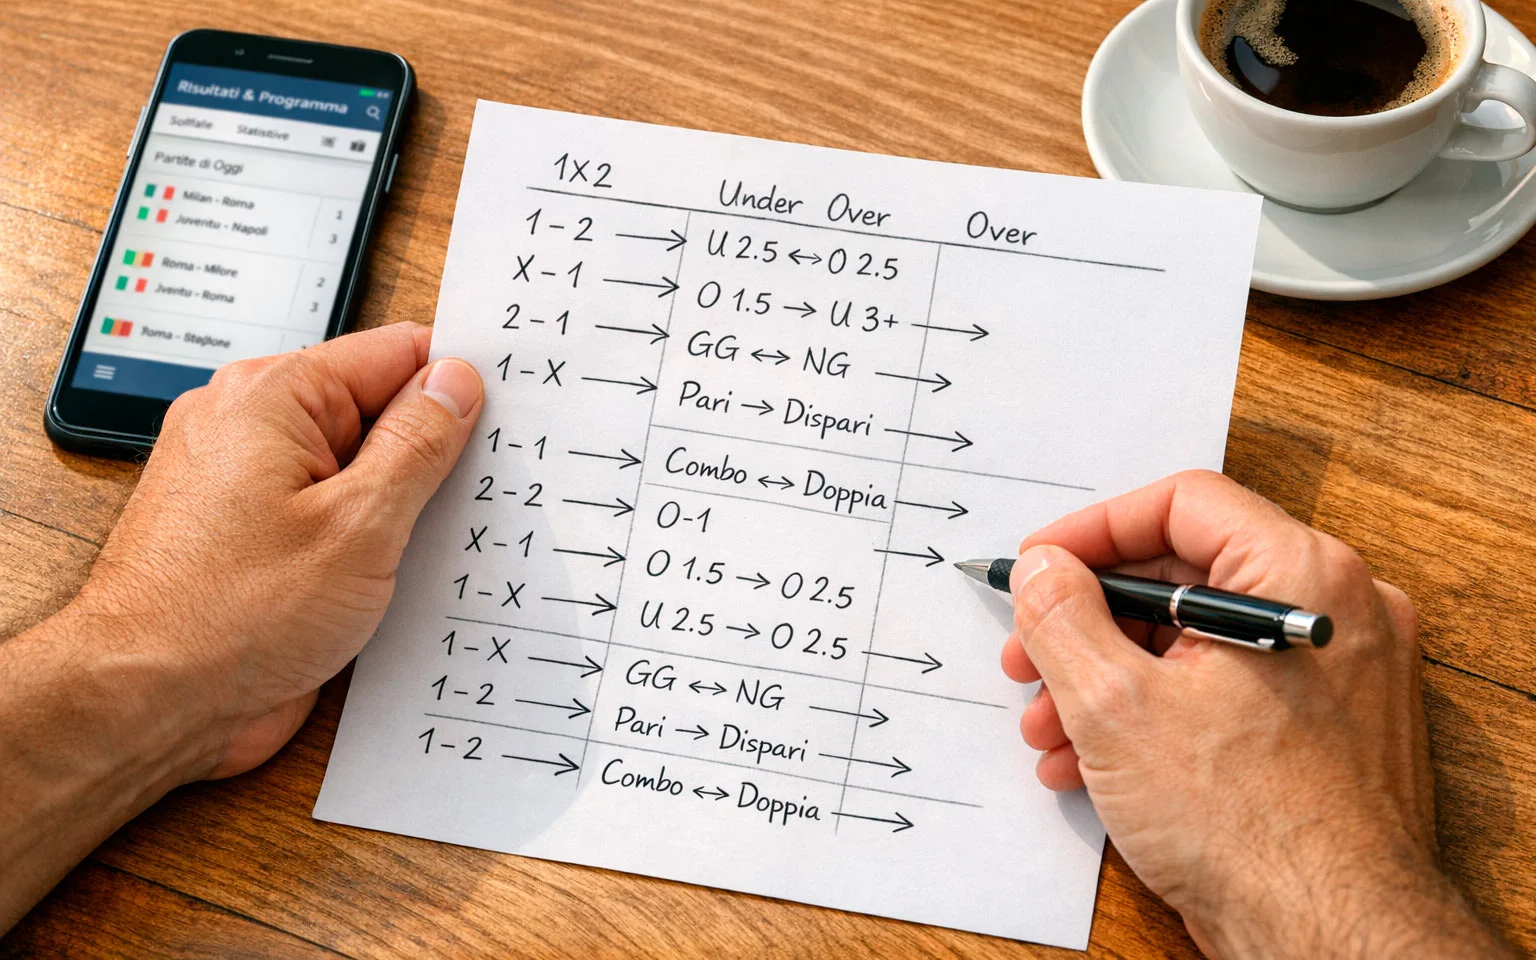 Risultati & Programma
Solffale Statisitive
Partite di Oggi
Milan - Roma 1
Juventu - Napoli 3
Roma - Milore 2
Jventu - Roma 3
Roma - Stejlone
1X2 Under Over Over
1-2 → U 2.5 ↔ O 2.5
X-1 → O 1.5 → U 3+ →
2-1 → GG ↔ NG →
1-X → Pari → Dispari →
1-1 → Combo ↔ Doppia →
2-2 → O-1 →
X-1 → O 1.5 → O 2.5
1-X → U 2.5 → O 2.5 →
1-X → GG ↔ NG →
1-2 → Pari → Dispari →
1-2 → Combo ↔ Doppia →